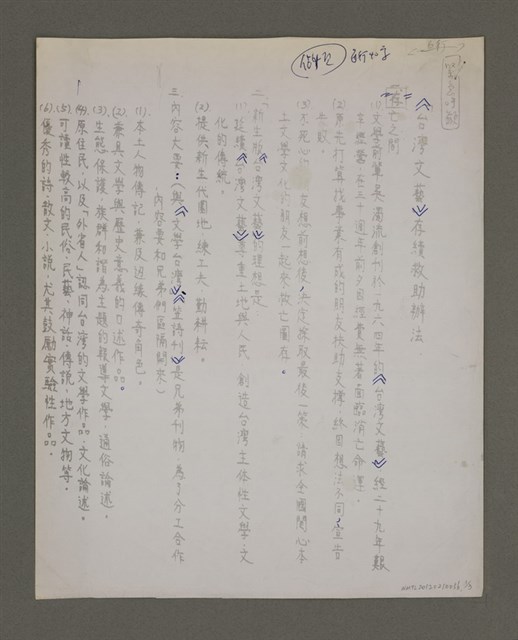 《台灣文藝》存續救助辦法
一、存亡之間
(1)文學前輩吳濁流創刊於一九六四年的《台灣文藝》經二十九年艱
辛經營,在三十週年前夕
(2)原先打算找事業有成的朋友扶幼支撐,終因想法不同,宣告
失敗。
(3)不死心的 決定採取最後一策,請求全國關心本
土文學文化的朋友一起來救亡圖存。
二、「新生的《台灣文藝》」的理想是
(1)延續《台灣文藝》尊重土地與人民,創造台灣主体性文學、文
化的傳統。
(2)提供新生代園地,練工夫,勤耕耘。
三、內容大要:(與《文學台灣》、《笠詩刊》是兄弟刊物,為了分工合作
,內容要和兄弟們區隔開來)
(1)本土人物傳記,兼及邊緣傳奇角色。
(2)兼具文學與歷史意義的口述作品。
(3)生態保護、族群和諧為主題的報導文學、通俗論述。
(4)原住民,以及「外省人」認同台灣的文學作品、文化論述。
(5)可讀性較高的民俗、民藝、神話、傳說、地方文物等。
(6)優秀的詩、散文、小說,尤其鼓勵實驗性作品。